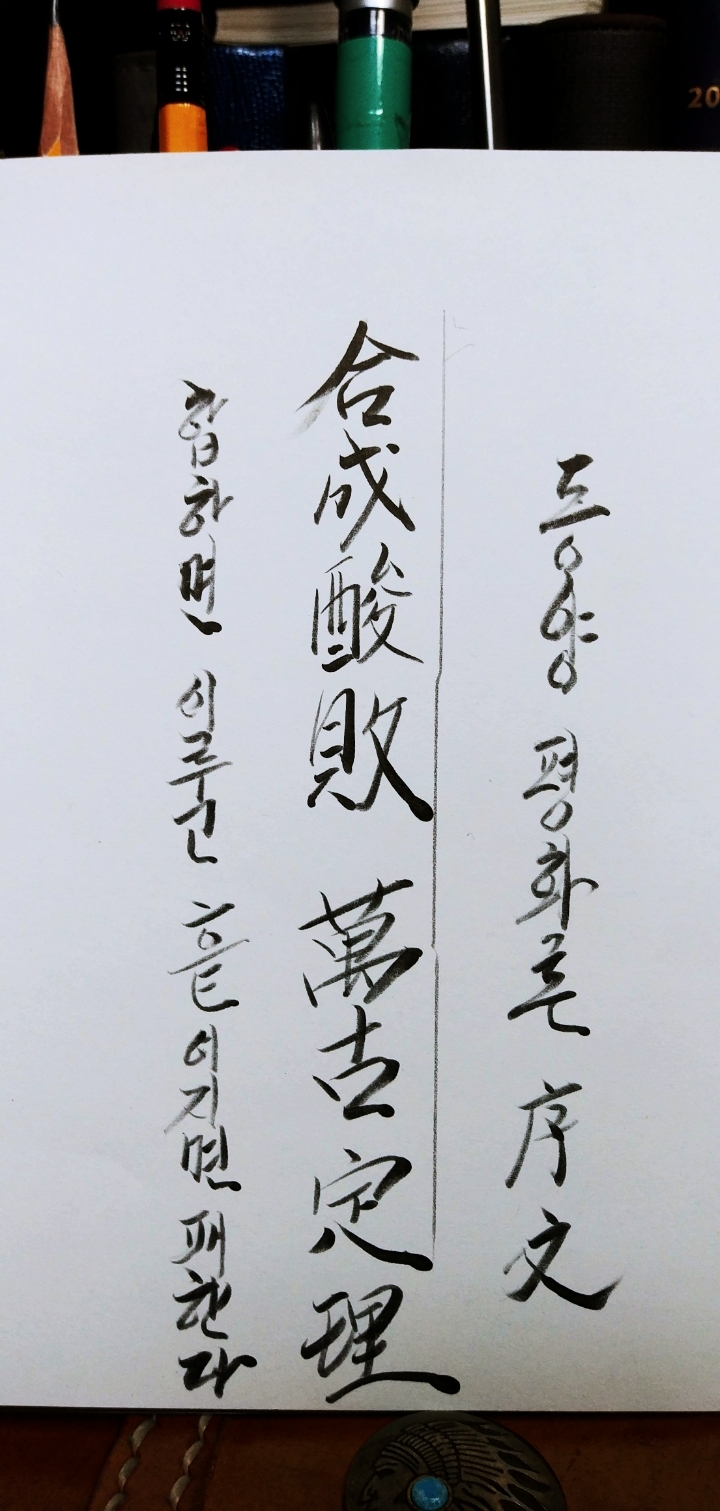 동양 평화론 序文
合成酸敗 萬古定理
합하면 이루고 흩어지면 패한다
20